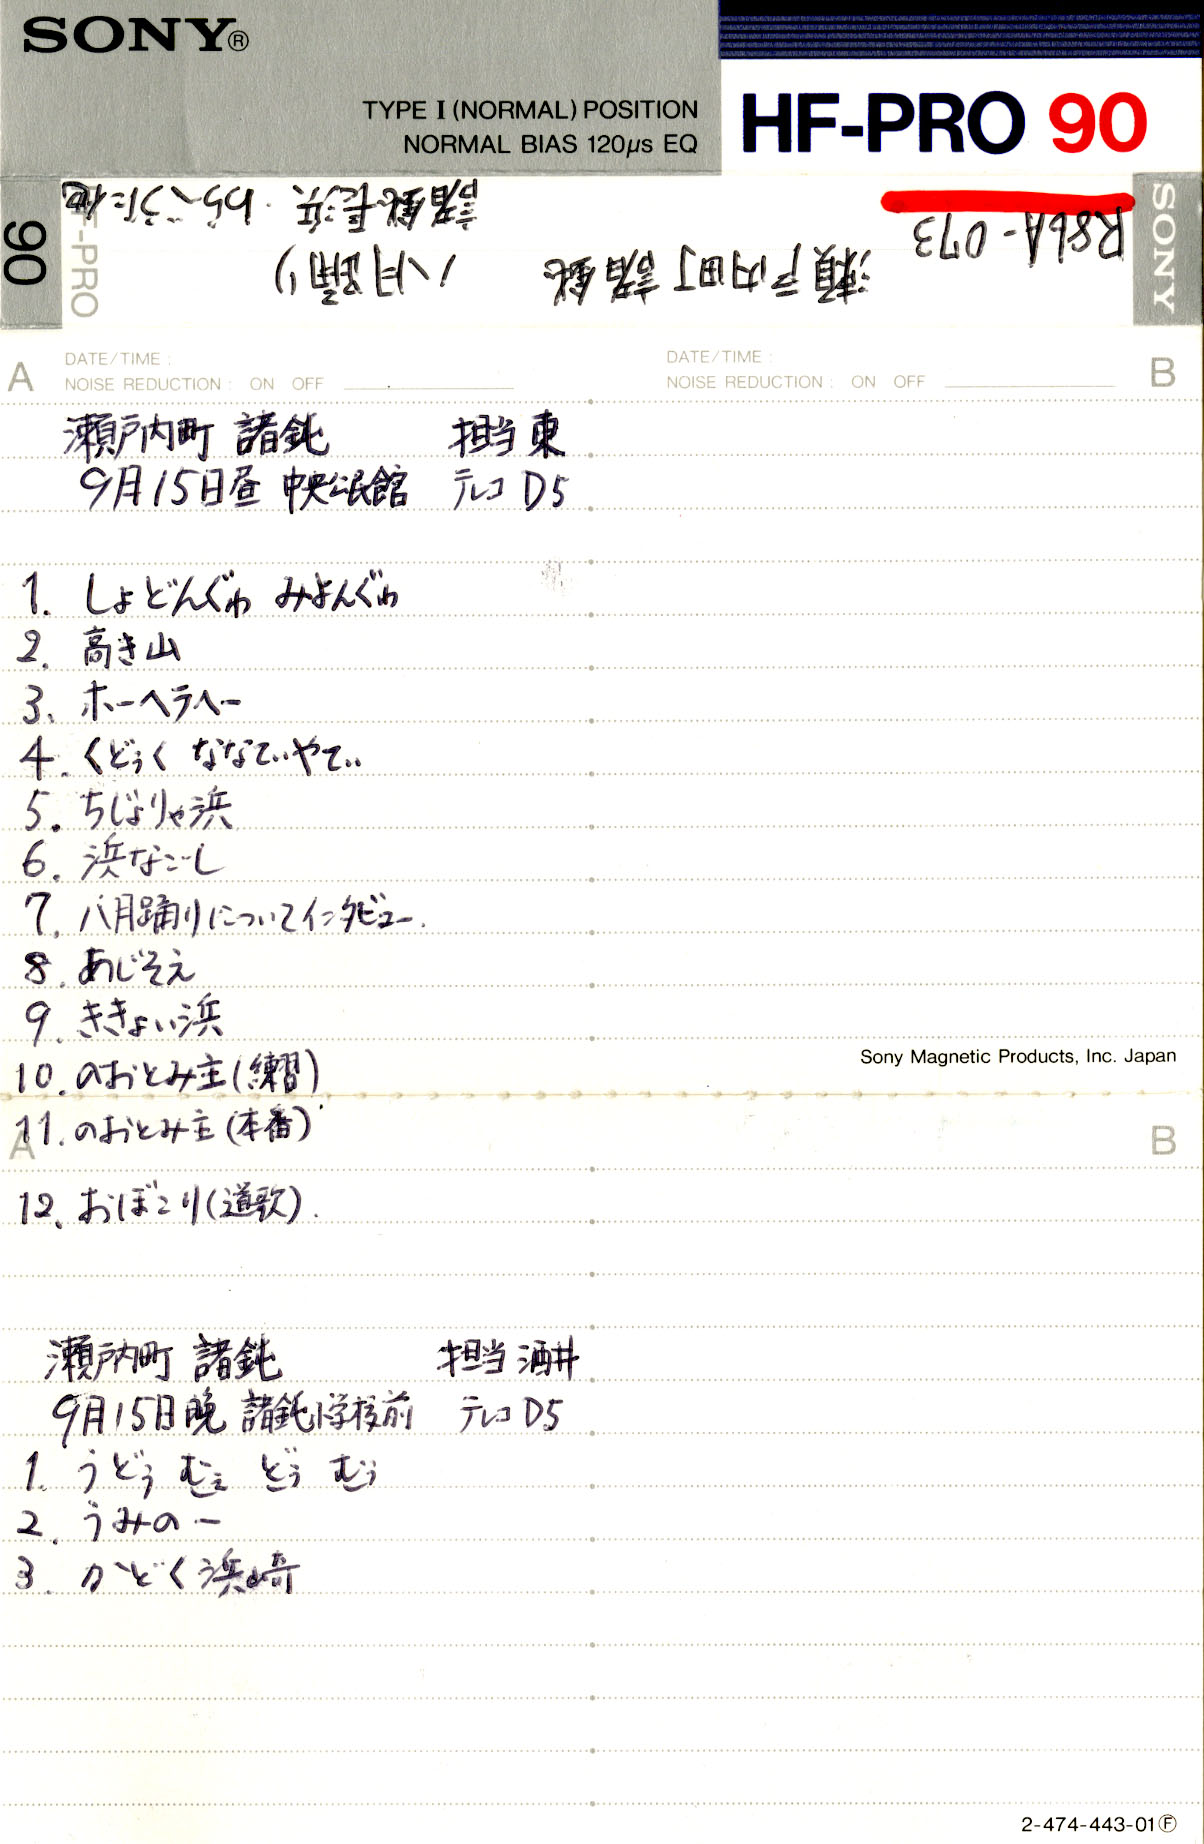 SONY®
TYPE I (NORMAL) POSITION
NORMAL BIAS 120μs EQ
HF-PRO 90
90
HF-PRO
SONY
R86A-073
瀬戸内町 諸鈍 八月踊り
諸鈍長浜・わらべうた他
A DATE/TIME :
NOISE REDUCTION : ON OFF
DATE/TIME : B
NOISE REDUCTION : ON OFF
瀬戸内町 諸鈍 担当 東
9月15日昼 中央公民館 テレコ D5
1. しょどんぐゎ みよんぐゎ
2. 高き山
3. ホーヘラヘー
4. くどぅく ななてぃやてぃ
5. ちじょりゃ浜
6. 浜なごし
7. 八月踊りについてインタビュー.
8. あじそえ
9. ききょい浜
10. のおとみ主(練習)
Sony Magnetic Products, Inc. Japan
11. のおとみ主(本番)
A
B
12. おぼこり(道歌).
瀬戸内町 諸鈍 担当 酒井
9月15日晩 諸鈍小学校前 テレコ D5
1. うどぅ むぇ どぅ むぅ
2. うみのー
3. かどく浜崎
2-474-443-01Ⓕ